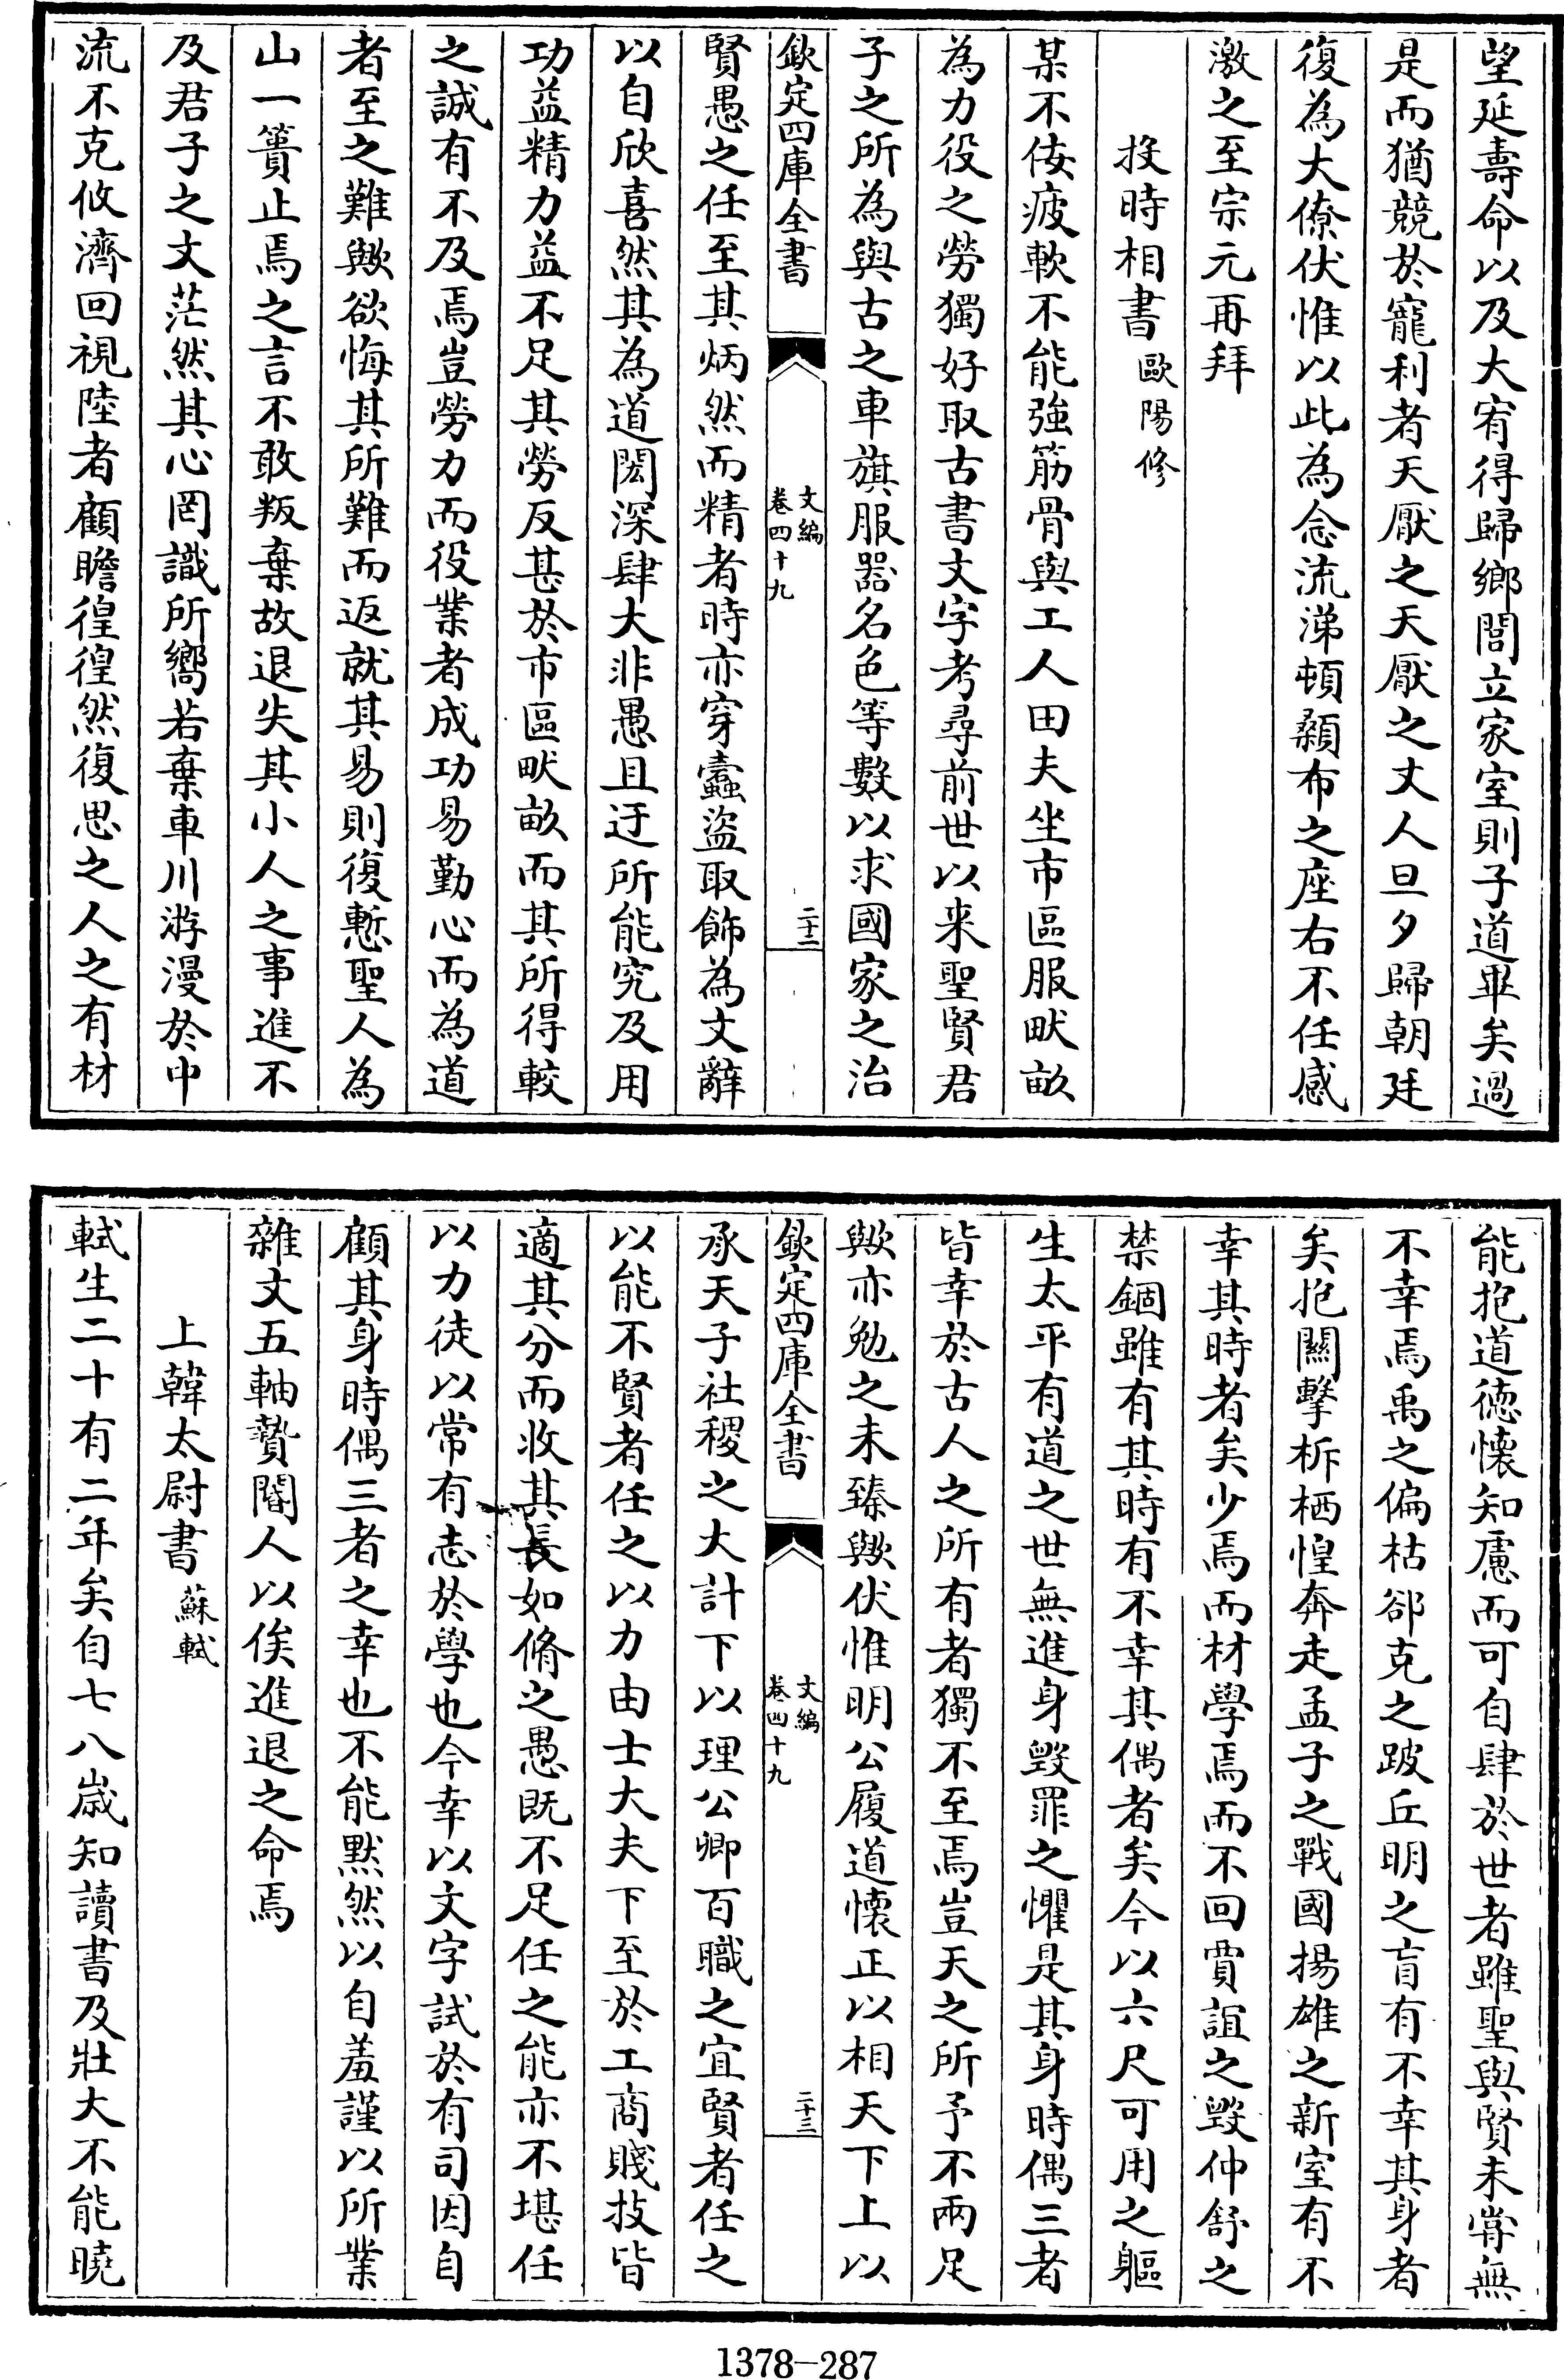 望延壽命以及大宥得歸鄉閭立家室則子道畢矣過
是而猶競於寵利者天厭之天厭之丈人旦夕歸朝廷
復為大僚伏惟以此為念流涕頓顙布之座右不任感
激之至宗元再拜
投時相書 歐陽修
某不佞疲軟不能強筋骨與工人田夫坐市區服畎畝
為力役之勞獨好取古書文字考尋前世以來聖賢君
子之所為與古之車旗服器名色等數以求國家之治
欽定四庫全書 文編 卷四十九 二十二
賢愚之任至其炳然而精者時亦穿蠹盜取飾為文辭
以自欣喜然其為道閎深肆大非愚且迂所能究及用
功益精力益不足其勞反甚於市區畎畝而其所得較
之誠有不及焉豈勞力而役業者成功易勤心而為道
者至之難歟欲悔其所難而返就其易則復慙聖人為
山一簣止焉之言不敢叛棄故退失其小人之事進不
及君子之文茫然其心罔識所嚮若棄車川游漫於中
流不克攸濟回視陸者顧瞻徨徨然復思之人之有材
能抱道德懷知慮而可自肆於世者雖聖與賢未嘗無
不幸焉禹之偏枯郤克之跛丘明之盲有不幸其身者
矣抱關擊柝栖惶奔走孟子之戰國揚雄之新室有不
幸其時者矣少焉而材學焉而不回賈誼之毀仲舒之
禁錮雖有其時有不幸其偶者矣今以六尺可用之軀
生太平有道之世無進身毀罪之懼是其身時偶三者
皆幸於古人之所有者獨不至焉豈天之所予不兩足
歟亦勉之未臻歟伏惟明公履道懷正以相天下上以
欽定四庫全書 文編 卷四十九 二十三
承天子社稷之大計下以理公卿百職之宜賢者任之
以能不賢者任之以力由士大夫下至於工商賤技皆
適其分而收其長如脩之愚既不足任之能亦不堪任
以力徒以常有志於學也今幸以文字試於有司因自
顧其身時偶三者之幸也不能默然以自羞謹以所業
雜文五軸贄閽人以俟進退之命焉
上韓太尉書 蘇軾
軾生二十有二年矣自七八歲知讀書及壯大不能曉
1378-287